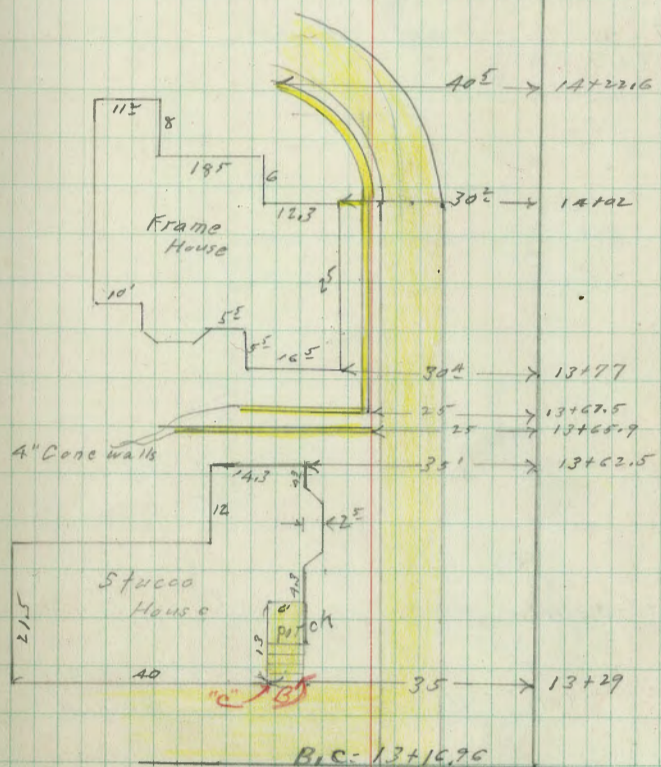 40⁵ 14+22.6
11⁵ 8
18⁵ 6
12.3 30² 14+02
Frame
House
25
10'
5⁵
5⁵
16⁵ 30⁴ 13+77
25 13+67.5
25 13+65.9
4" Conc walls
14.3 35' 13+62.5
4.3
12 2⁵
Stucco
House
4.3
6'
porch
21.5 13
40 "C" B 35 13+29
B.C = 13+16.96